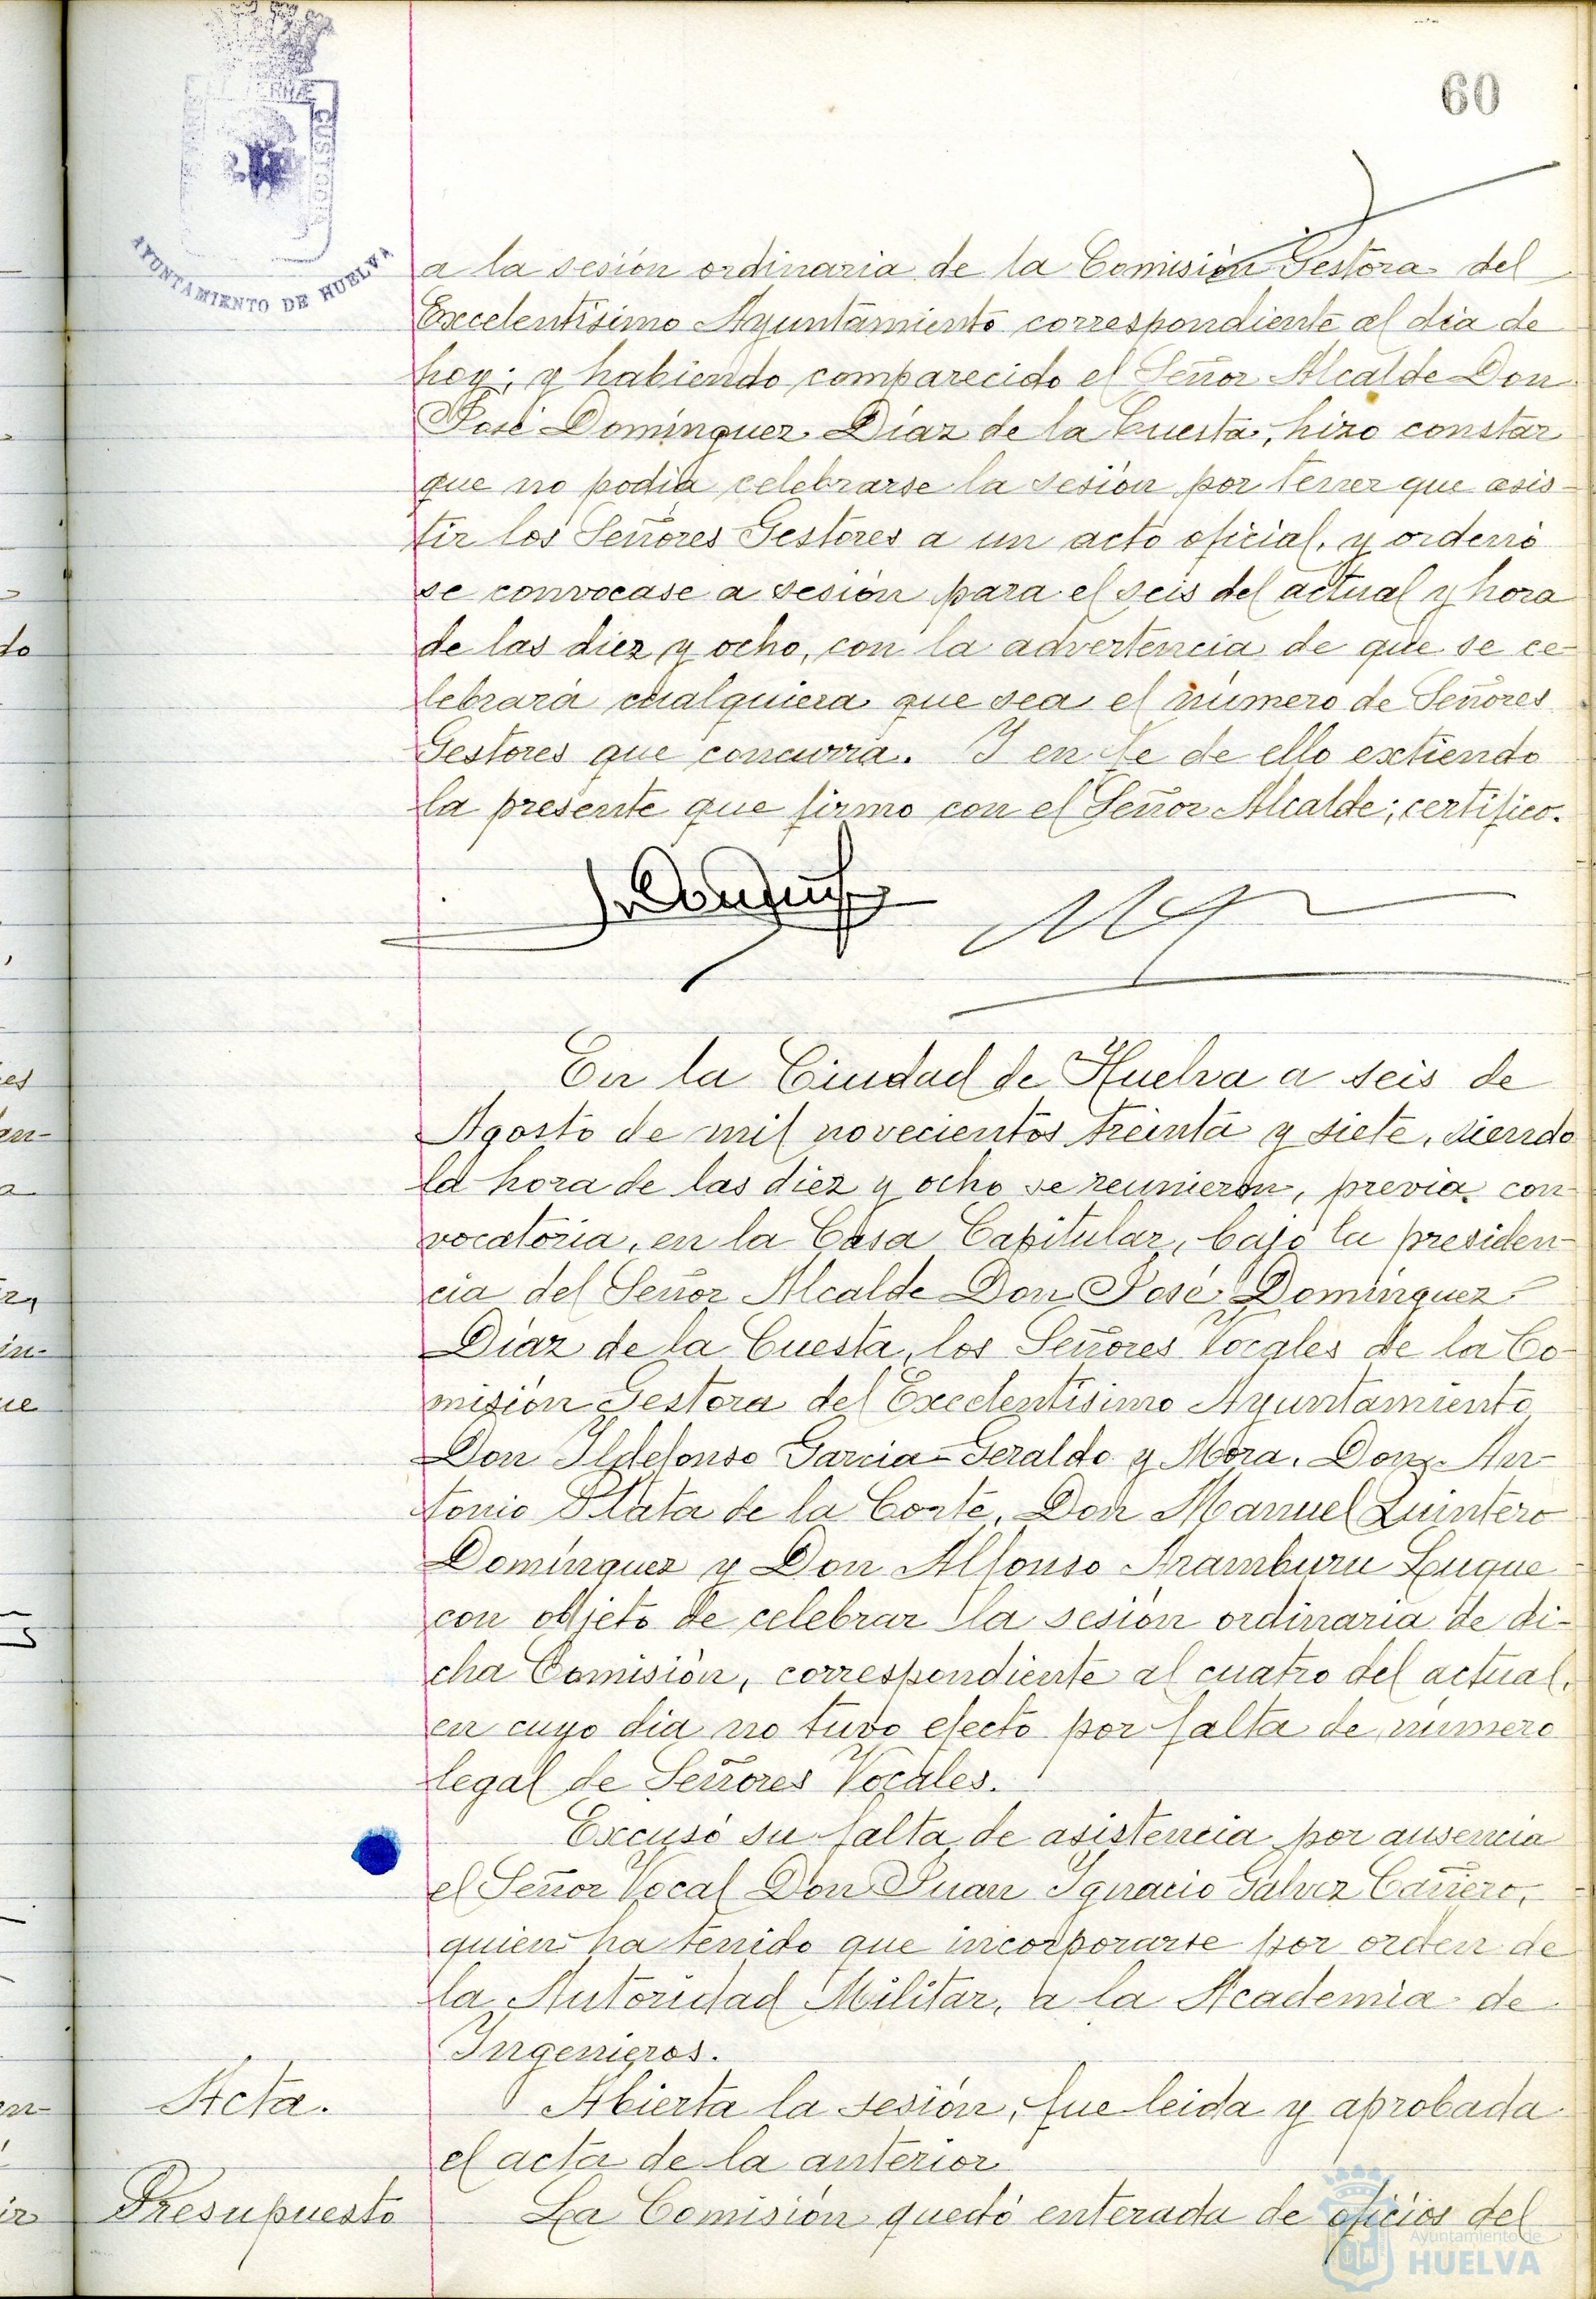 60
AYUNTAMIENTO DE HUELVA
a la sesión ordinaria de la Comisión Gestora del
Excelentísimo Ayuntamiento correspondiente al día de
hoy; y habiendo comparecido el Señor Alcalde Don
José Domínguez Díaz de la Cuesta, hizo constar
que no podía celebrarse la sesión por tener que asis-
tir los Señores Gestores a un acto oficial, y ordenó
se convocase a sesión para el seis del actual y hora
de las diez y ocho, con la advertencia de que se ce-
lebrará cualquiera que sea el número de Señores
Gestores que concurra. Y en fe de ello extiendo
la presente que firmo con el Señor Alcalde; certifico.
En la Ciudad de Huelva a seis de
Agosto de mil novecientos treinta y siete, siendo
la hora de las diez y ocho se reunieron, previa con-
vocatoria, en la Casa Capitular, bajo la presiden-
cia del Señor Alcalde Don José Domínguez
Díaz de la Cuesta, los Señores Vocales de la Co-
misión Gestora del Excelentísimo Ayuntamiento
Don Ildefonso Garcia-Geraldo y Mora, Don An-
tonio Plata de la Corte, Don Manuel Quintero
Domínguez y Don Alfonso Aramburu Luque
con objeto de celebrar la sesión ordinaria de di-
cha Comisión, correspondiente al cuatro del actual,
en cuyo día no tuvo efecto por falta de número
legal de Señores Vocales.
Excusó su falta de asistencia por ausencia
el Señor Vocal Don Juan Ignacio Gálvez Cañero,
quien ha tenido que incorporarse por orden de
la Autoridad Militar, a la Academia de
Ingenieros.
Acta.
Abierta la sesión, fue leida y aprobada
el acta de la anterior
Presupuesto
La Comisión quedó enterada de oficios del
Ayuntamiento de
HUELVA